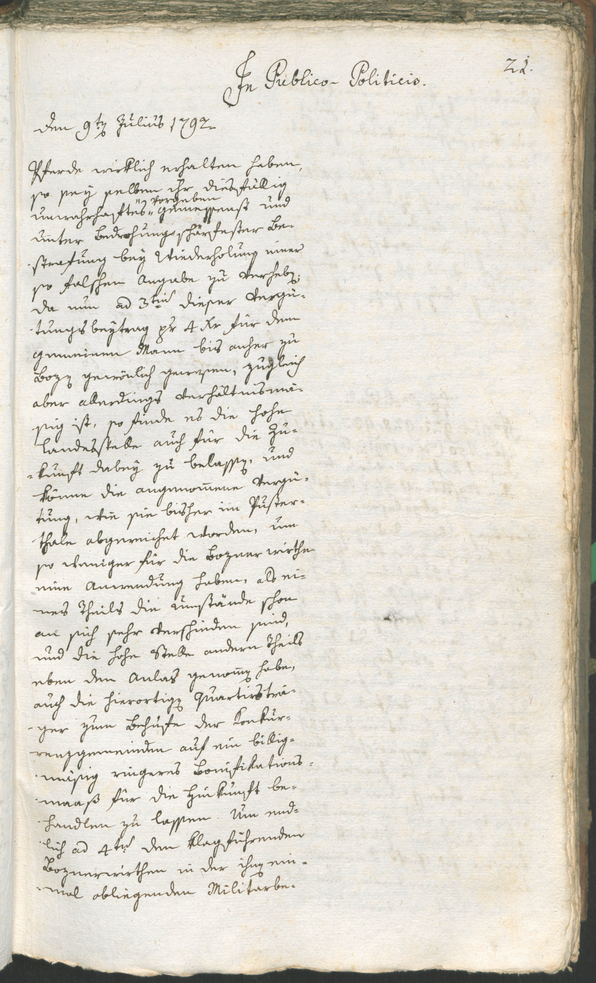 In Publico-Politicis.
21.
den 9ten Julius 1792.
Pferde wirklich erhalten haben,
so sey selben ihr diesfällig
unwahrhaftes Vorgeben
gemessenst und
unter Bedrohung schärfester Be-
strafung bey Wiederholung einer
so falschen Angabe zu verheben:
da nun ad 3tium dieser Vergü-
tungsbeytrag pr 4 Xr für den
gemeinen Mann bis anher zu
Bozen gewönlich gewesen, zugleich
aber allerdings verhältnismä-
sig ist, so finde es die hohe
Landesstelle auch für die Zu-
kunft dabey zu belassen, und
könne die angenommene Vergü-
tung, wie sie bisher im Puster-
thale abgereichet worden, um
so weniger für die Boznerwirthe
eine Anwendung haben, als ei-
nes Theils die Umstände schon
an sich sehr verschieden sind,
und die hohe Stelle andern Theils
eben den Anlas genommen habe,
auch die hierortigen Quartierträ-
ger zum Behufe der Konkur-
renzgemeinden auf ein billig-
mäsig ringeres Bonifikations-
maaß für die Hinkunft be-
handlen zu lassen. Um end-
lich ad 4tum den klagführenden
Boznerwirthen in der ihnen ein-
mal obliegenden Militarbe-